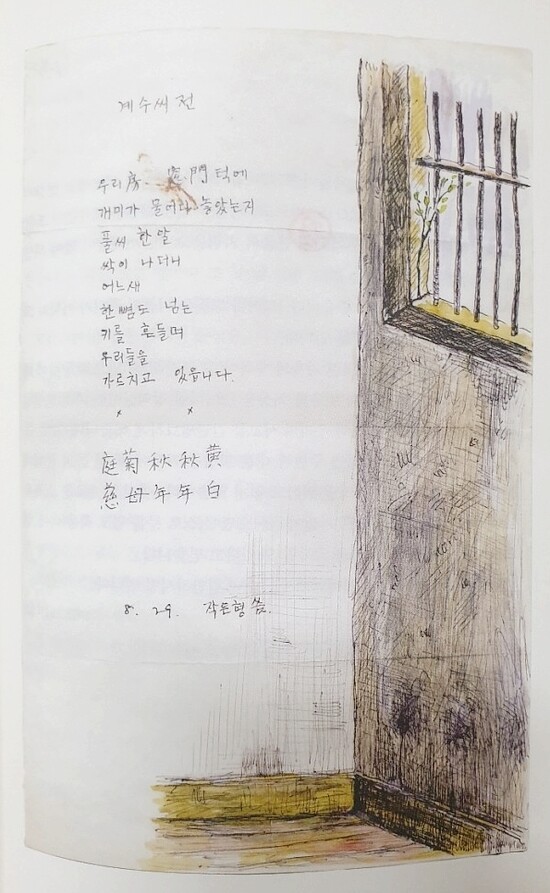 계수씨 전
우리 房 窓門턱에
개미가 물어다 놓았는지
풀씨 한알
싹이 나더니
어느새
한뼘도 넘는
키를 흔들며
우리들을
가르치고 있읍니다.
× ×
庭菊秋秋黃
慈母年年白
8. 29. 작은형 씀.